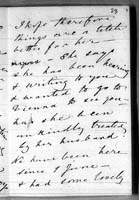 29
I hope therefore
things are a little
better for her
anyone - She says
she has been hearing
& writing to you
& wanted to go to
Vienna to see you
has she been
unkindly treated
by her husband
We have been here
since 1 June -
& had some lovely